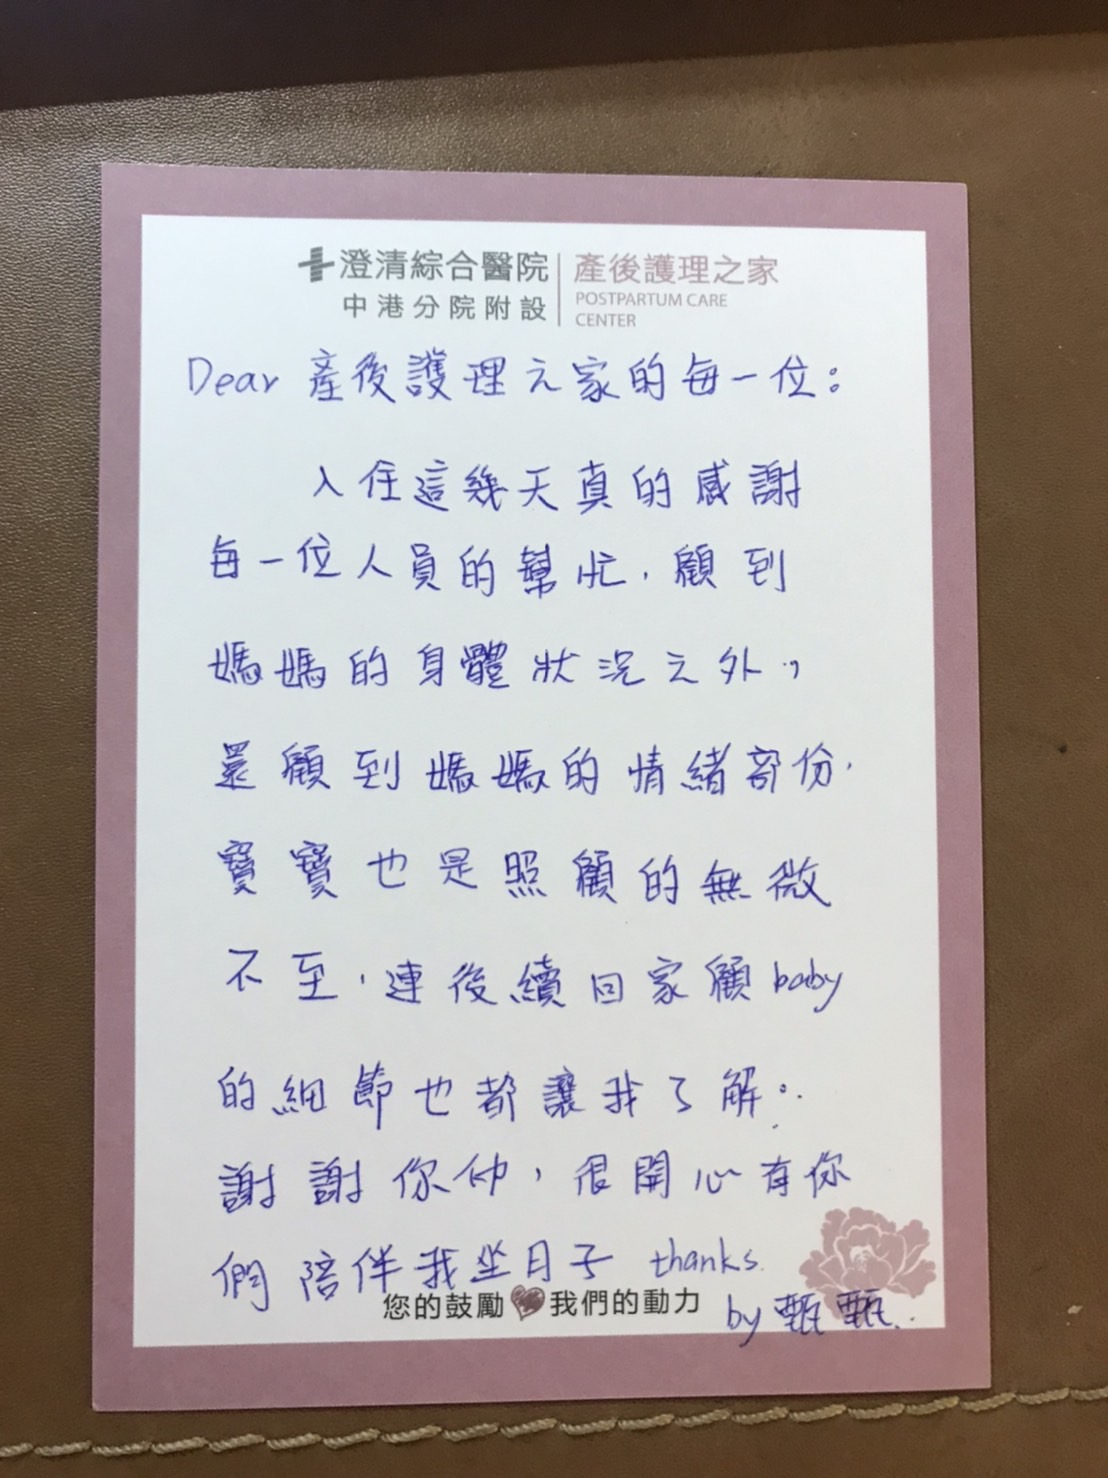 澄清綜合醫院
中港分院附設
產後護理之家
POSTPARTUM CARE
CENTER
Dear 產後護理之家的每一位：
入住這幾天真的感謝
每一位人員的幫忙，顧到
媽媽的身體狀況之外，
還顧到媽媽的情緒部份，
寶寶也是照顧的無微
不至，連後續回家顧baby
的細節也都讓我了解。
謝謝你们，很開心有你
們陪伴我坐月子 thanks.
您的鼓勵 我們的動力
by 甄甄..